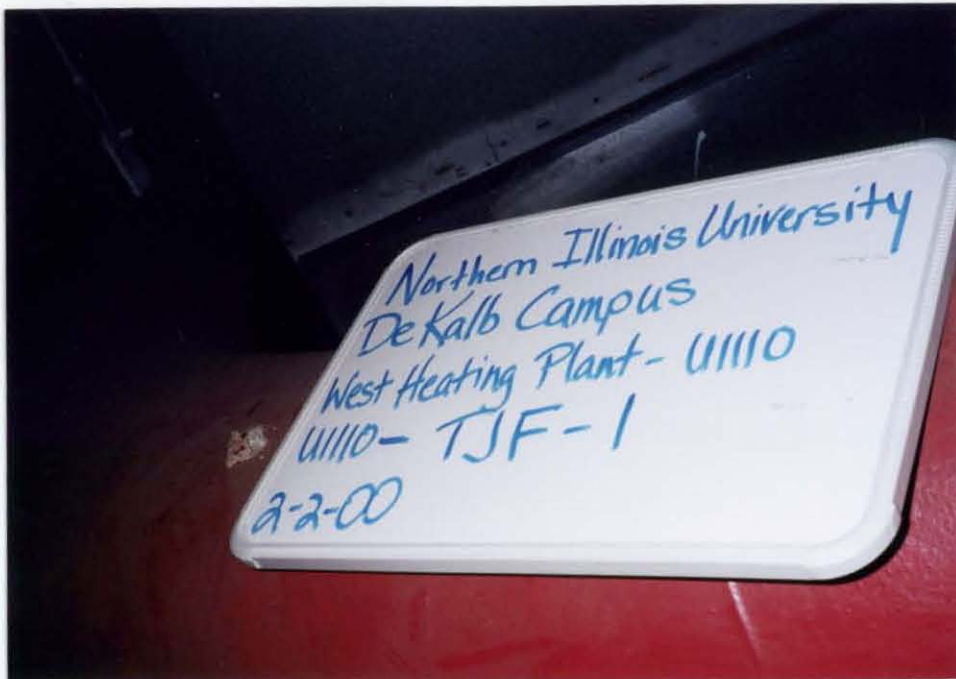 Northern Illinois University
DeKalb Campus
West Heating Plant - U1110
U1110 - TJF - 1
2-2-00